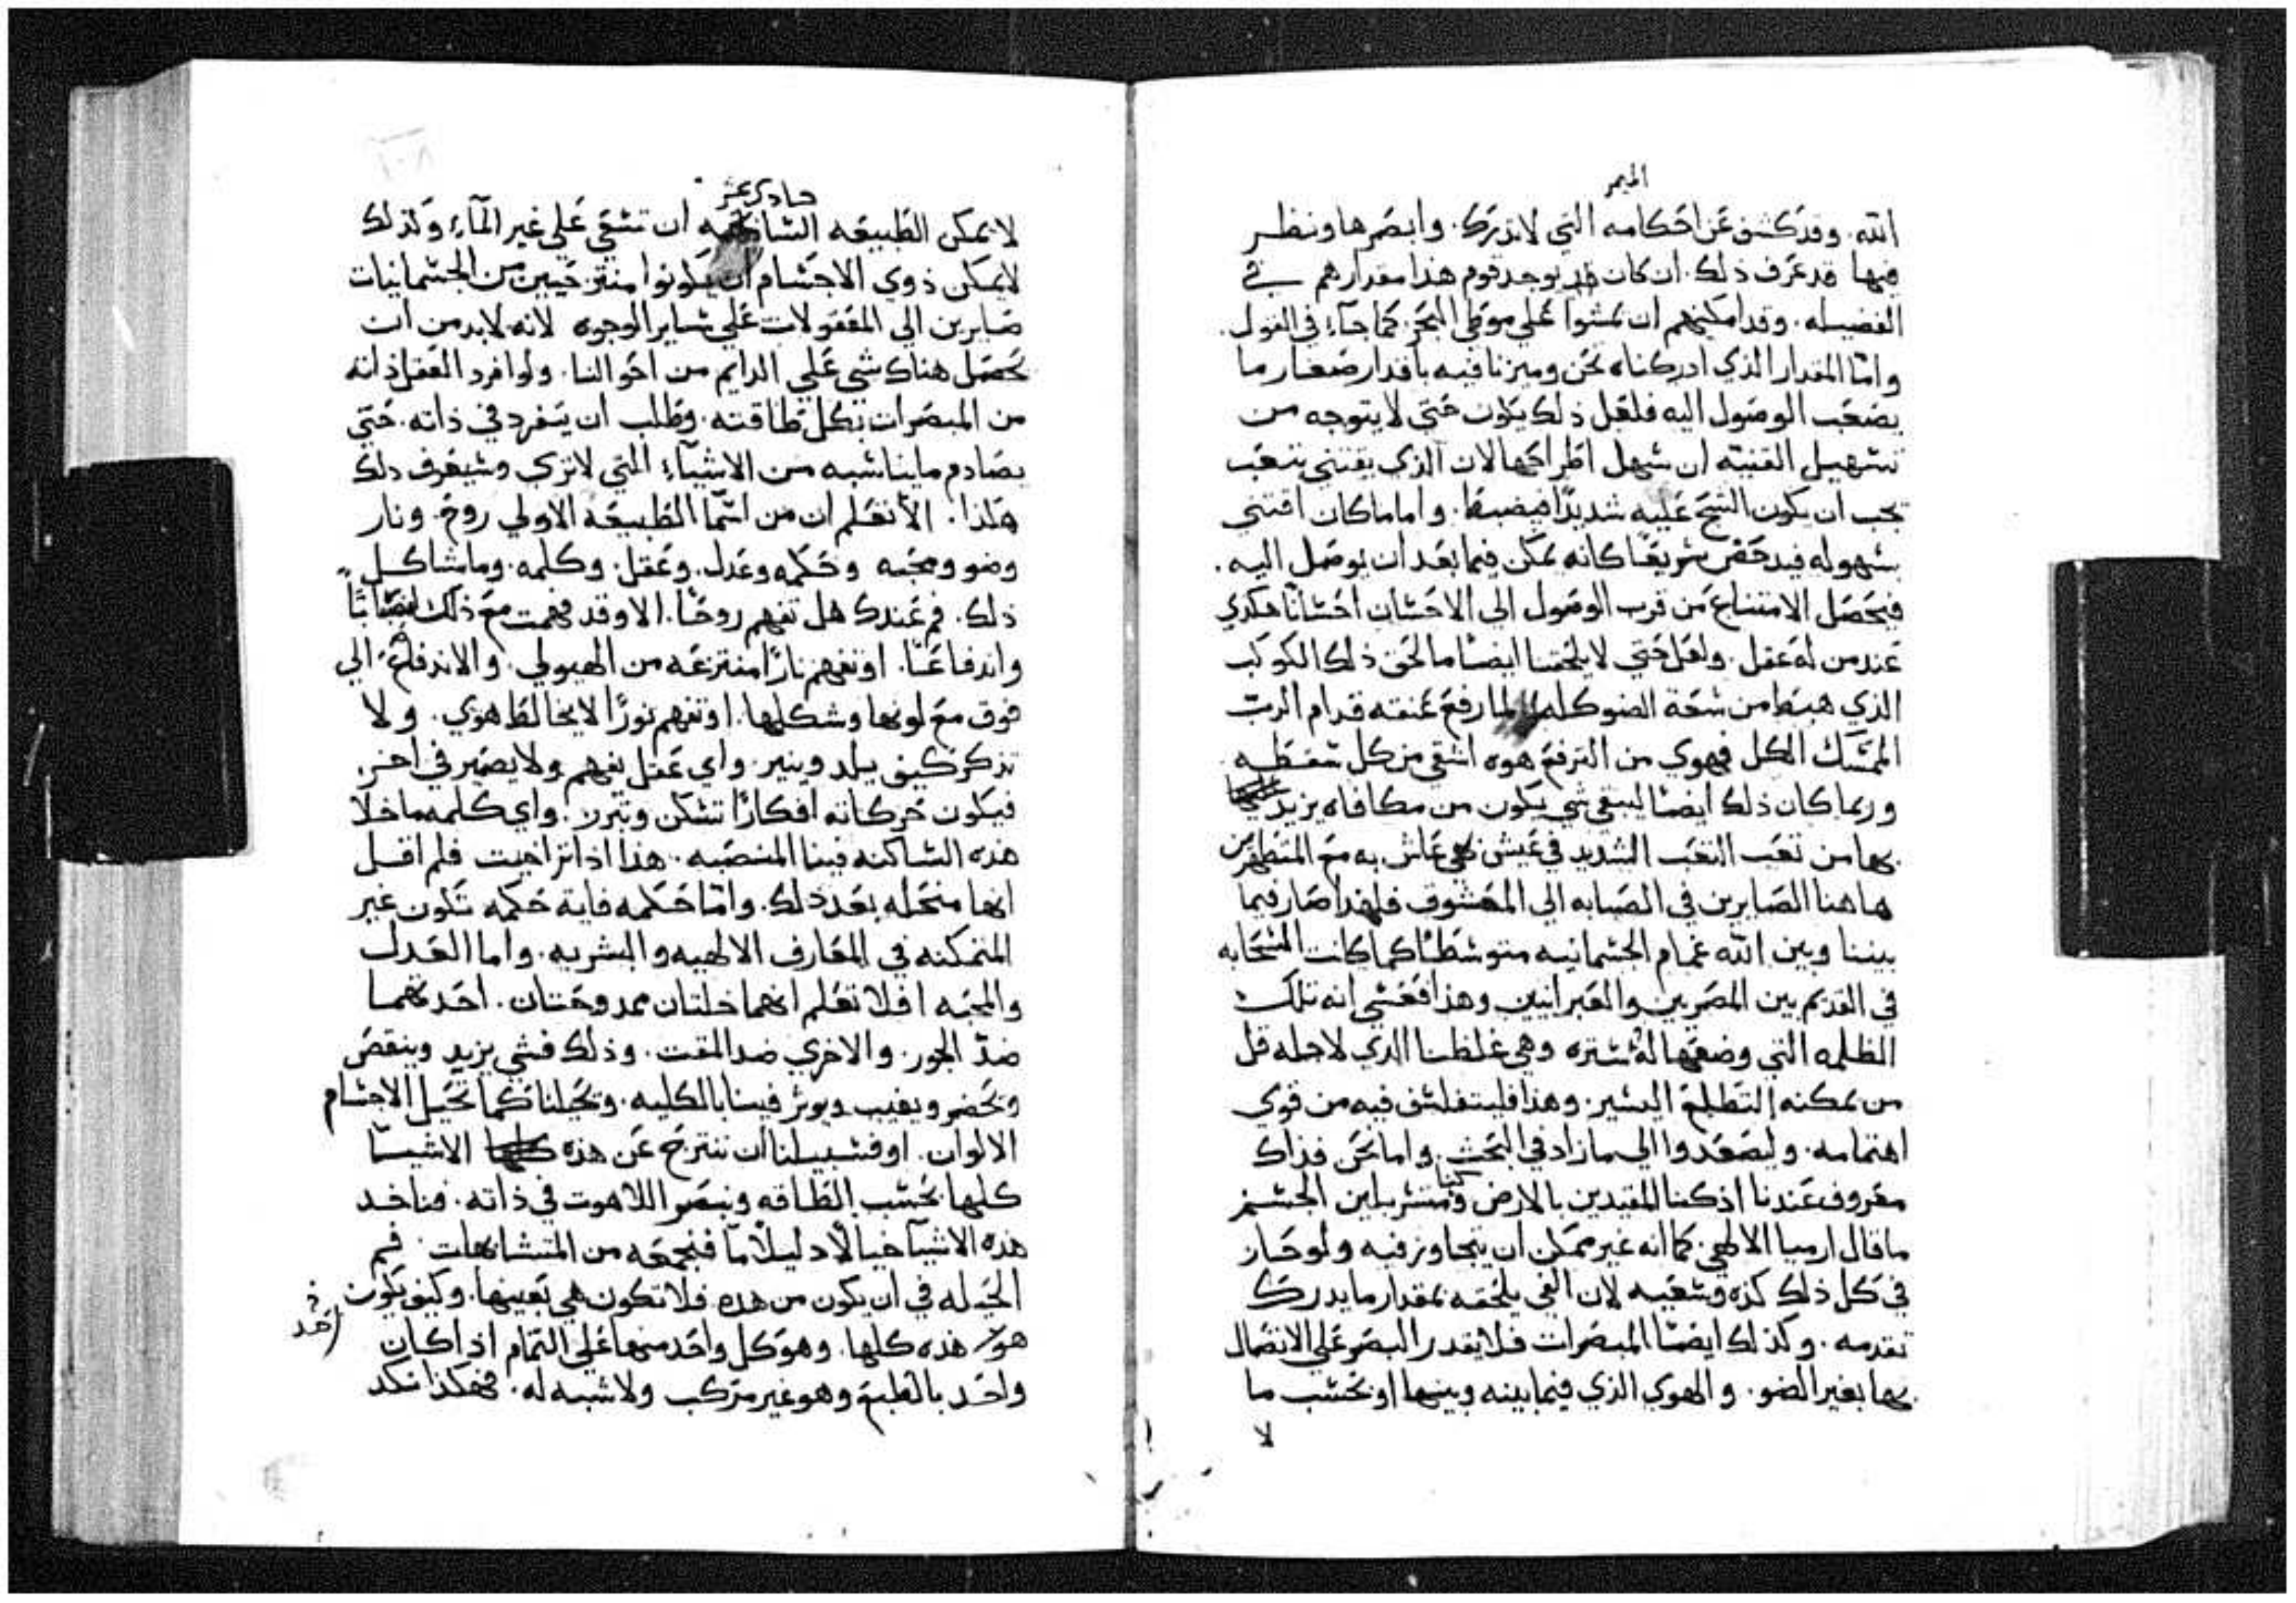 الميمر
الله. وقد كشف عن احكامه التي لا تدرك. وابصرها ونظر
فيها قد عرف ذلك. ان كان قد يوجد قوم هذا مقدارهم في
الفضيله. وقد امكنهم ان يمشوا علي موطي البحر. كما جاء في القول.
واما المقدار الذي ادركناه نحن وميزنا فيه باقدار صغار ما
يصعب الوصول اليه فلعل ذلك يكون حتي لا يتوجه من
تسهيل القنيه ان سهل اطراحها لان الذي يقتني بتعب
يجب ان يكون الشح عليه شديدا فيضبط. واما ما كان اقتني
بسهوله فيدحض سريعا كانه يمكن فيما بعد ان يوصل اليه.
فيحصل الامتناع من قرب الوصول الي الاحسان احسانا هكدي
عند من له عقل. ولعل حتي لا يلحقنا ايضا ما لحق ذلك الكوكب
الذي هبط من سعة الضو كله لما رفع عنقه قدام الرب
الممسك الكل فهوي من الترفع هوه اشقي من كل سقطه
وربما كان ذلك ايضا ليبقي شي يكون من مكافاه يزيد
بها من تعب التعب الشديد في عيش بهي عاش به مع المتطهرين
هاهنا الصابرين في الصبابه الي المعشوق فلهذا صار فيما
بيننا وبين الله غمام الجسمانيه متوسطا كما كانت السحابه
في القديم بين المصريين والعبرانيين وهذا فعسي انه تلك
الظلمه التي وضعها له ستره وهي غلظنا الدي لاجله قل
من يمكنه التطلع اليسير. وهذا فليتفلسف فيه من قوي
اهتمامه. وليصعدوا الي ما زاد في البحث. واما نحن فذاك
معروف عندنا اذ كنا المقيدين بالارض وكنا متسربلين الجسم
ما قال ارميا الالهي. كما انه غير ممكن ان يتجاوز فيه ولو جاز
في كل ذلك كده وسعيه لان الفي يلحقه بمقدار ما يدرك
تقدمه. وكذلك ايضا المبصرات فلا يقدر البصر علي الاتصال
بها بغير الضو. والهوي الذي فيما بينه وبينها او بحسب ما
لا
حادي عشر
لا يمكن الطبيعه السابحه ان تسعي علي غير المآء وكذلك
لا يمكن ذوي الاجسام ان يكونوا منتزحيين من الجسمانيات
صايرين الي المعقولات علي ساير الوجوه لانه لا بد من ان
يحصل هناك شي علي الدايم من احوالنا. ولو افرد العقل ذاته
من المبصرات بكل طاقته. وطلب ان يتفرد في ذاته. حتي
يصادم ما يناسبه من الاشيآء التي لا تري وسيعرف دلك
هكذا. الا تعلم ان من اسما الطبيعه الاولي روح. ونار
وضو ومحبه وحكمه وعدل. وعقل. وكلمه. وما شاكل
ذلك. فم عندك هل تفهم روحا. الا وقد فهمت مع ذلك انصبابا
واندفاعا. او تفهم نارا منتزعه من الهيولي. والاندفاع الي
فوق مع لونها وشكلها. او تفهم نورا لا يخالط هوي. ولا
تذكر كيف يلد وينير. واي عقل يفهم ولا يصير في اخر.
فيكون حركاته افكارا تسكن وتبرز. واي كلمه ما خلا
هذه الساكنه فينا المنصبه. هذا اذا تراجيت فلم اقل
انها منحله بعد دلك. واما حكمه فاية حكمه تكون غير
المتمكنه في المعارف الالهيه والبشريه. واما العدل
والمحبه افلا تعلم انهما خلتان ممدوحتان. احدهما
ضد الجور. والاخري ضد المقت. وذلك فشي يزيد وينقص
ويحضر ويغيب ويوثر فينا بالكليه. وتحيلنا كما تحيل الاجسام
الالوان. او فسبيلنا ان ننتزح عن هذه كلها الاشيآ
كلها بحسب الطاقه ونبصر اللاهوت في ذاته. فناخد
هذه الاشيآ خيالا دليلا ما فنجمعه من المتشابهات. فم
الحيله في ان يكون من هده فلا تكون هي بعينها. وكيف يكون
هو هذه كلها. وهو كل واحد منها علي التمام اذا كان
احد
واحد بالطبع وهو غير مركب ولا شبه له. فهكذا نكد